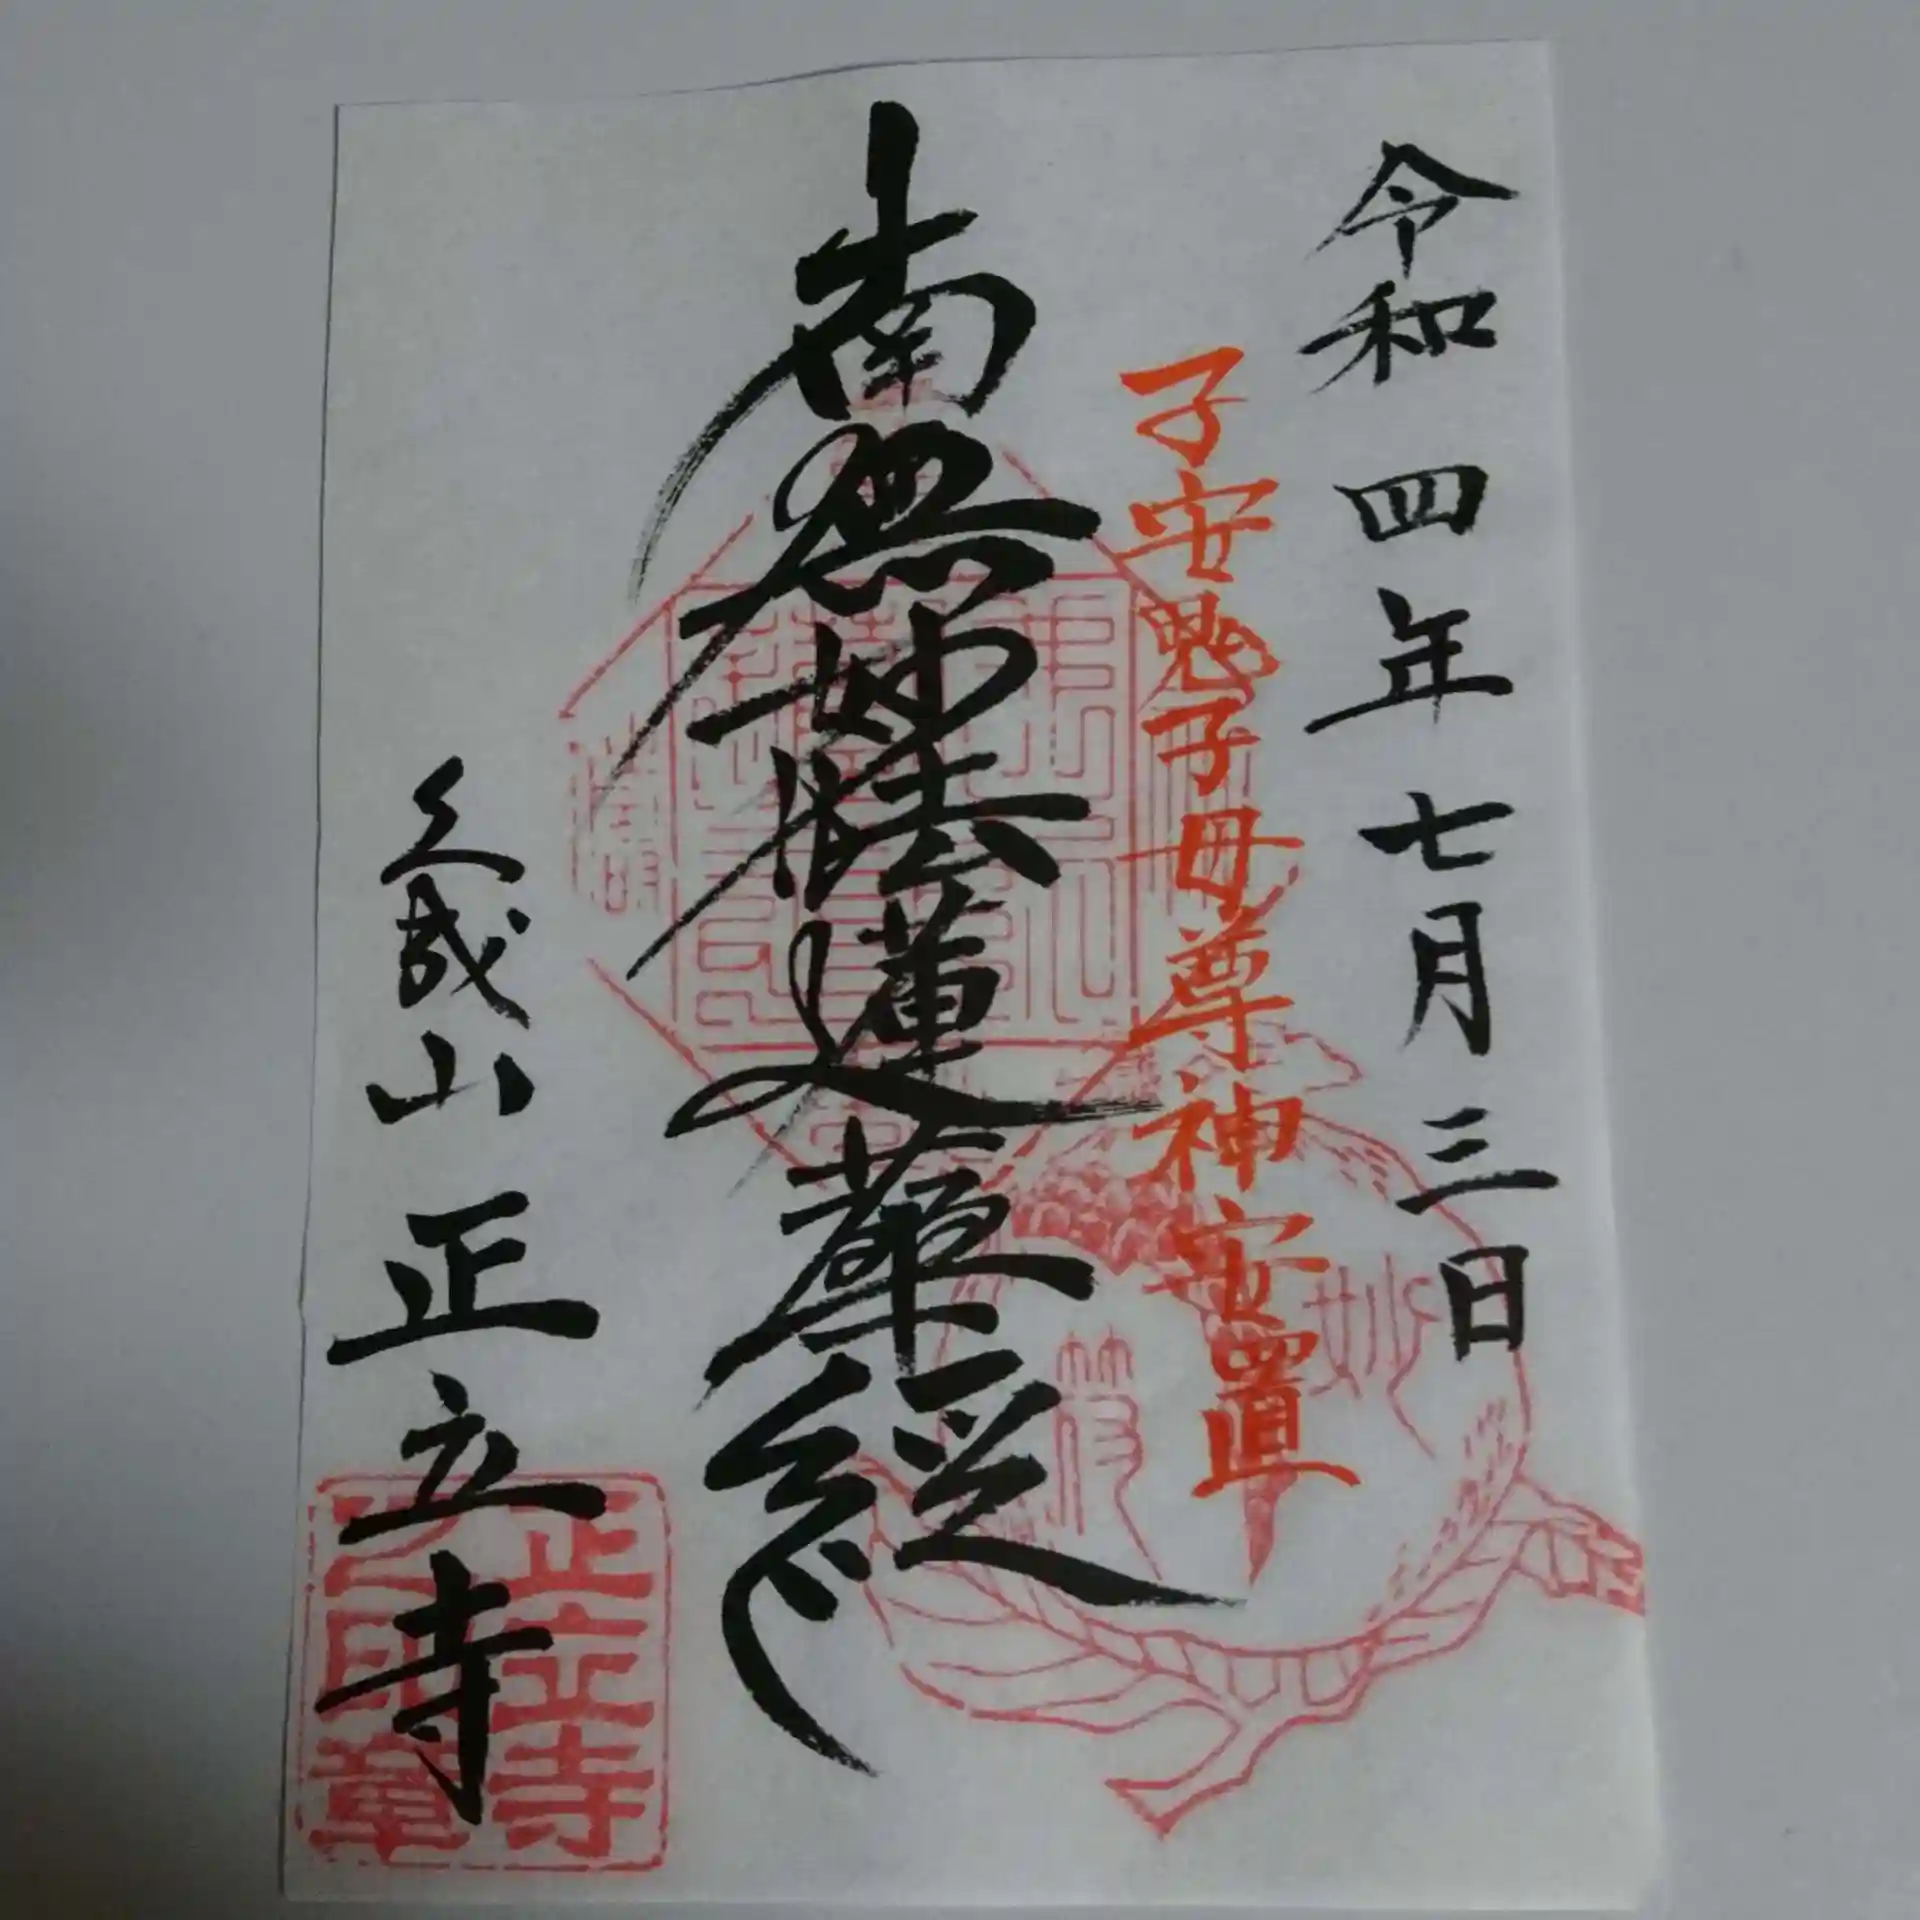 令和四年七月三日
子安鬼子母尊神安置
南無妙法蓮華経
久成山 正立寺
正立寺
章
妙